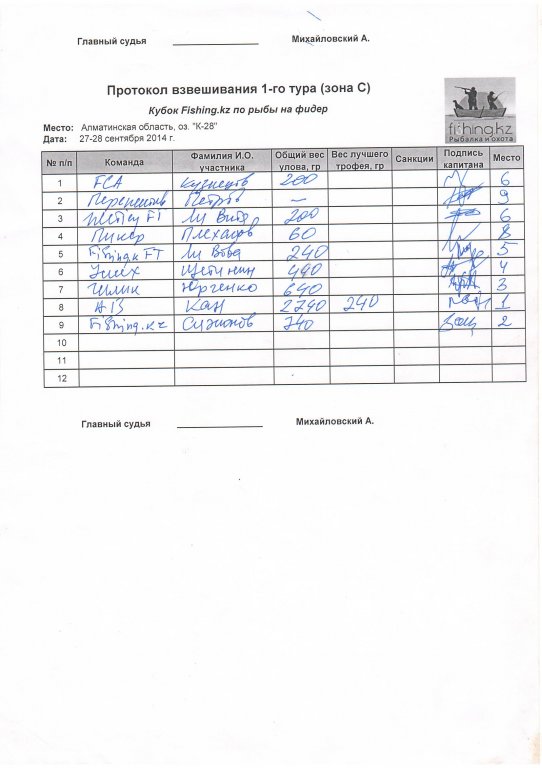 Главный судья ____________ Михайловский А.
Протокол взвешивания 1-го тура (зона С)
Кубок Fishing.kz по рыбы на фидер
fishing.kz
Рыбалка и охота
Место: Алматинская область, оз. "К-28"
Дата: 27-28 сентября 2014 г.
№ п/п Команда Фамилия И.О. участника Общий вес улова, гр Вес лучшего трофея, гр Санкции Подпись капитана Место
1 FCA Кузнецов 200 6
2 Петров — 9
3 Ли Витя 200 6
4 Пикер Плеханов 60 8
5 Fishing.kz FT Ли Вова 240 5
6 Щетинин 490 4
7 Юрченко 640 3
8 Кан 2790 240 1
9 Fishing.kz 740 2
10
11
12
Главный судья ____________ Михайловский А.